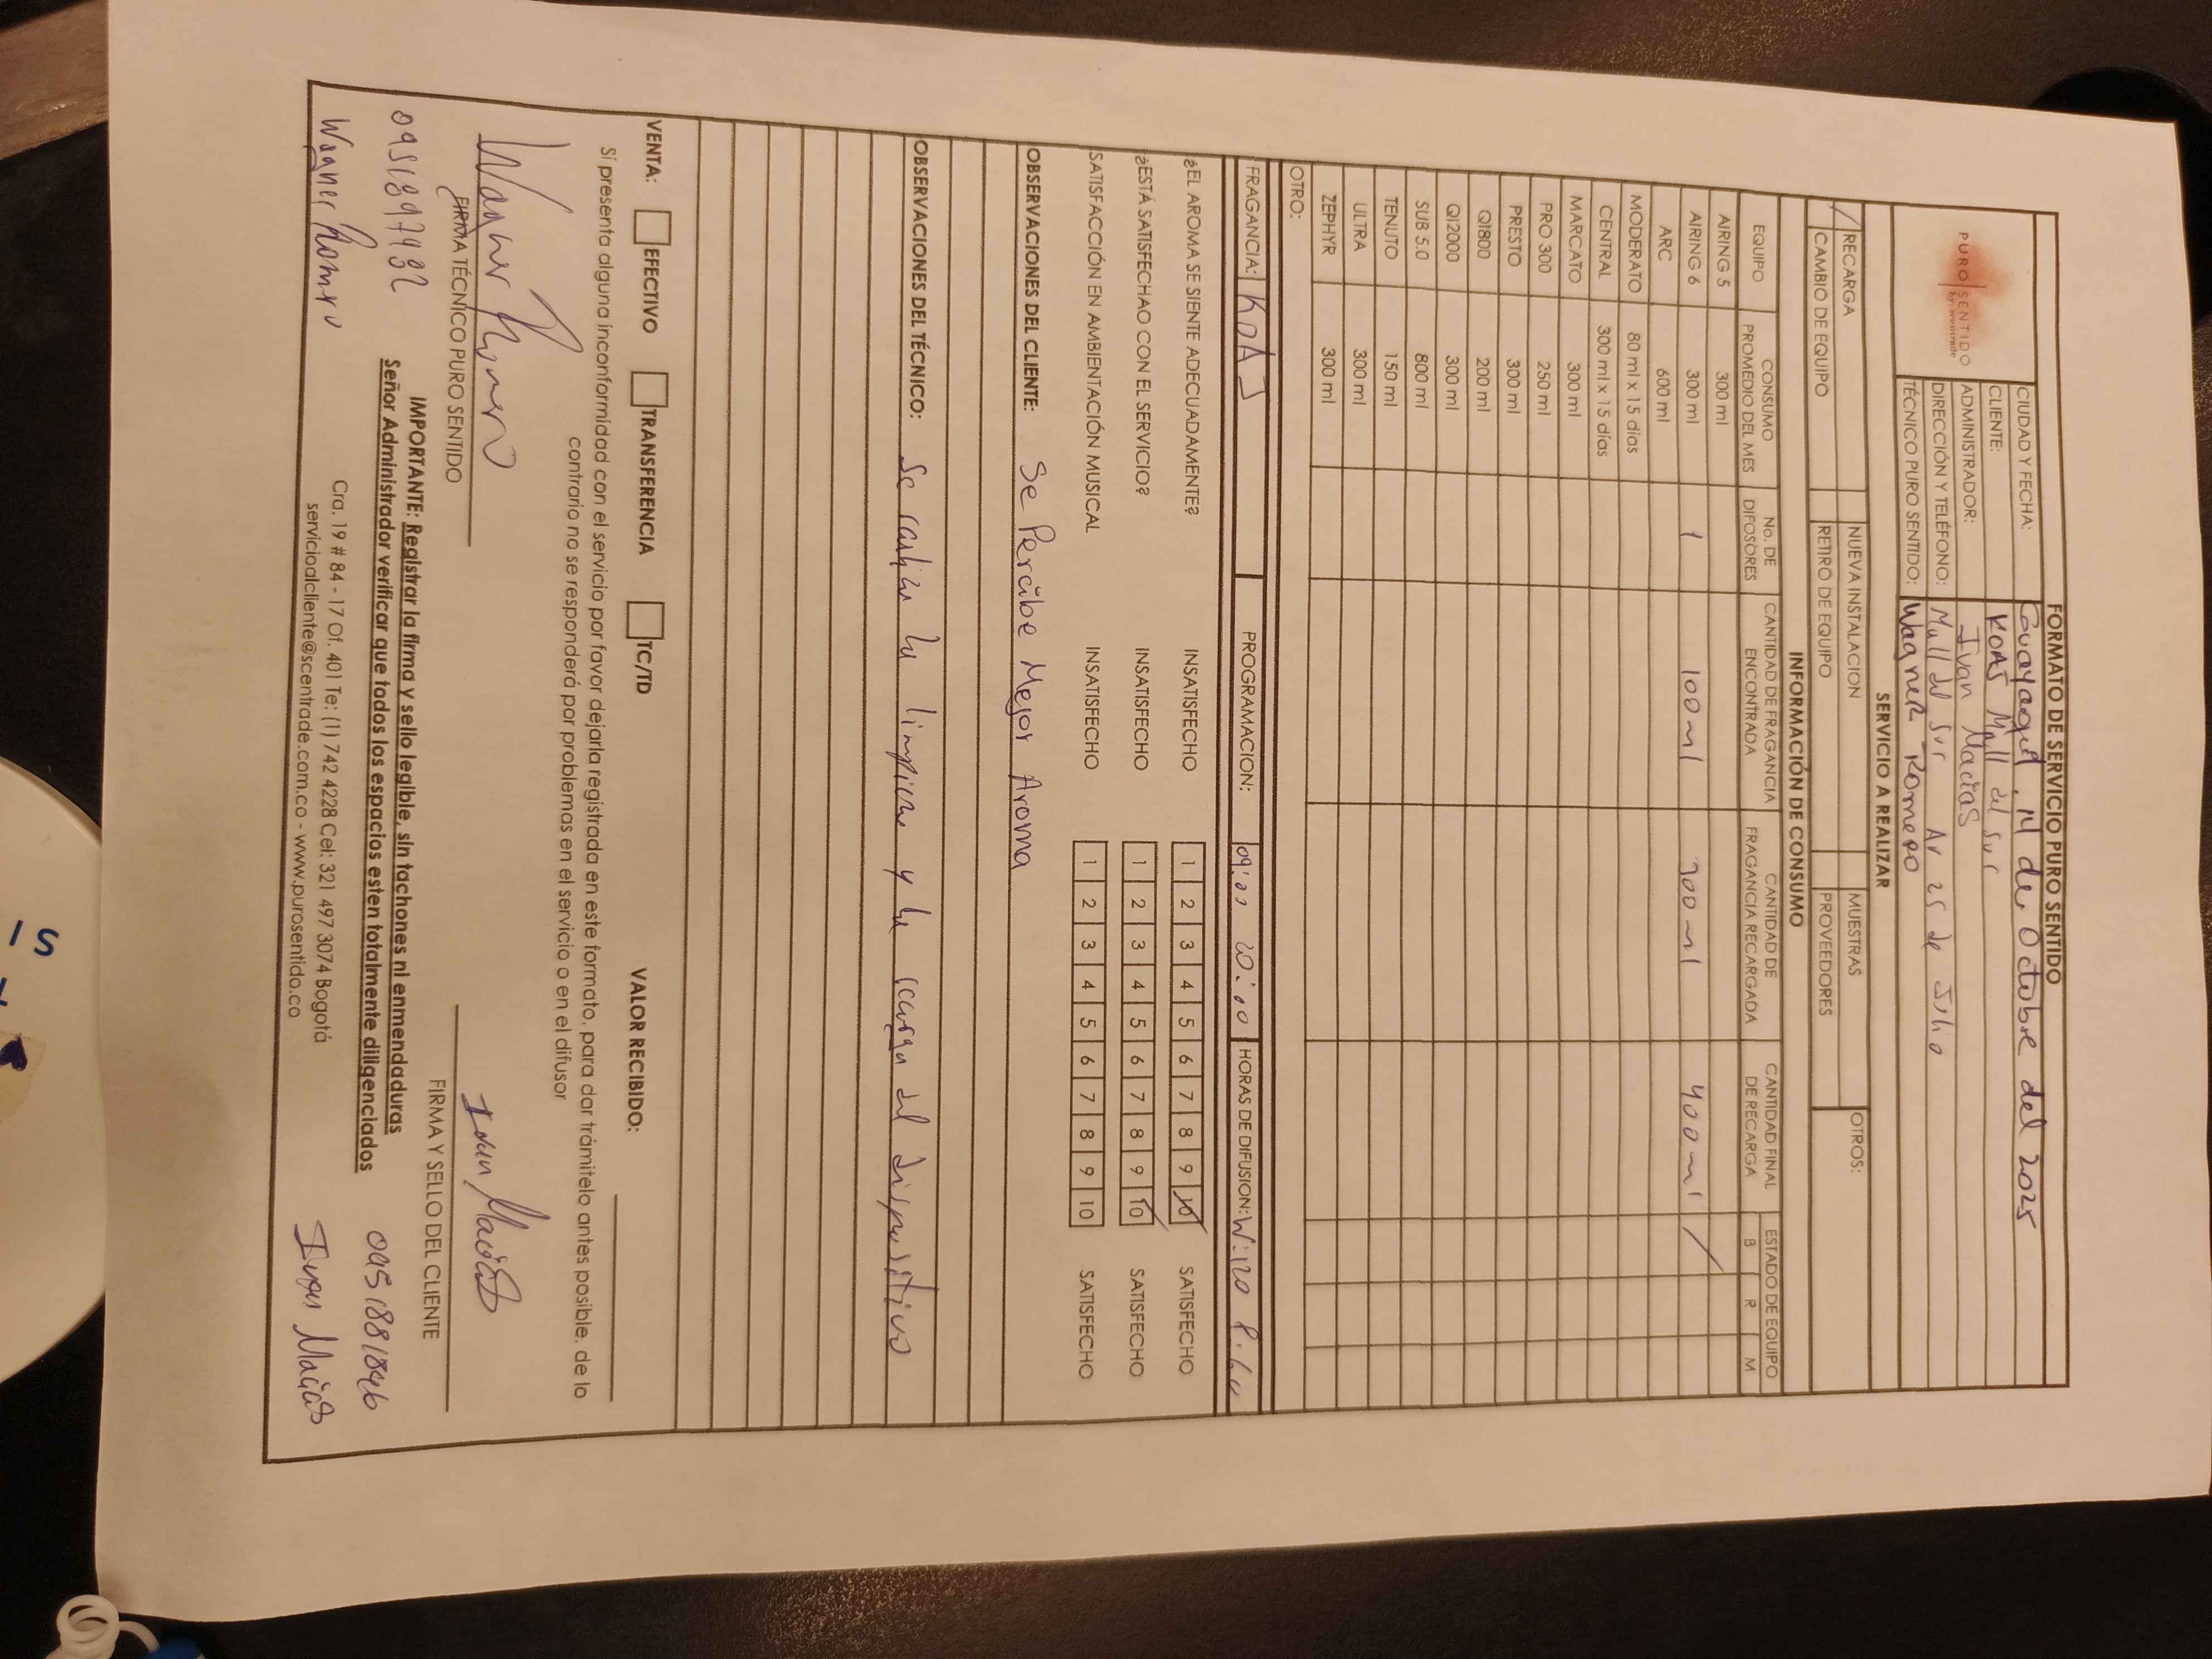 FORMATO DE SERVICIO PURO SENTIDO
PURO SENTIDO
by scentrade
CIUDAD Y FECHA: Guayaquil, 14 de Octobre del 2025
CLIENTE: KOAJ Mall del sur
ADMINISTRADOR: Ivan Macias
DIRECCIÓN Y TELÉFONO: Mall del Sur Av 25 de Julio
TÉCNICO PURO SENTIDO: Wagner Romero
SERVICIO A REALIZAR
/ RECARGA NUEVA INSTALACION MUESTRAS OTROS:
CAMBIO DE EQUIPO RETIRO DE EQUIPO PROVEEDORES
INFORMACIÓN DE CONSUMO
EQUIPO CONSUMO PROMEDIO DEL MES No. DE DIFOSORES CANTIDAD DE FRAGANCIA ENCONTRADA CANTIDAD DE FRAGANCIA RECARGADA CANTIDAD FINAL DE RECARGA ESTADO DE EQUIPO
B R M
AIRING 5 300 ml
AIRING 6 300 ml 1 100ml 300ml 400ml /
ARC 600 ml
MODERATO 80 ml x 15 dias
CENTRAL 300 ml x 15 dias
MARCATO 300 ml
PRO 300 250 ml
PRESTO 300 ml
QI800 200 ml
QI2000 300 ml
SUB 5.0 800 ml
TENUTO 150 ml
ULTRA 300 ml
ZEPHYR 300 ml
OTRO:
FRAGANCIA: KOAJ PROGRAMACION: 09:00 20:00 HORAS DE DIFUSION: W:120
¿EL AROMA SE SIENTE ADECUADAMENTE? INSATISFECHO 1 2 3 4 5 6 7 8 9 10 SATISFECHO
¿ESTÁ SATISFECHAO CON EL SERVICIO? INSATISFECHO 1 2 3 4 5 6 7 8 9 10 SATISFECHO
SATISFACCIÓN EN AMBIENTACIÓN MUSICAL INSATISFECHO 1 2 3 4 5 6 7 8 9 10 SATISFECHO
OBSERVACIONES DEL CLIENTE: Se Percibe Mejor Aroma
OBSERVACIONES DEL TÉCNICO: Se realiza la limpieza y la recarga del dispositivo
VENTA: EFECTIVO TRANSFERENCIA TC/TD VALOR RECIBIDO:
Sí presenta alguna inconformidad con el servicio por favor dejarla registrada en este formato, para dar trámitelo antes posible, de lo
contrario no se responderá por problemas en el servicio o en el difusor
Wagner Romero Ivan Macias
FIRMA TÉCNICO PURO SENTIDO FIRMA Y SELLO DEL CLIENTE
IMPORTANTE: Registrar la firma y sello legible, sin tachones ni enmendaduras
Señor Administrador verificar que todos los espacios esten totalmente diligenciados
0951897932 0951881846
Wagner Romero Ivan Macias
Cra. 19 # 84 - 17 Of. 401 Te: (1) 742 4228 Cel: 321 497 3074 Bogotá
servicioalcliente@scentrade.com.co - www.purosentido.co
15